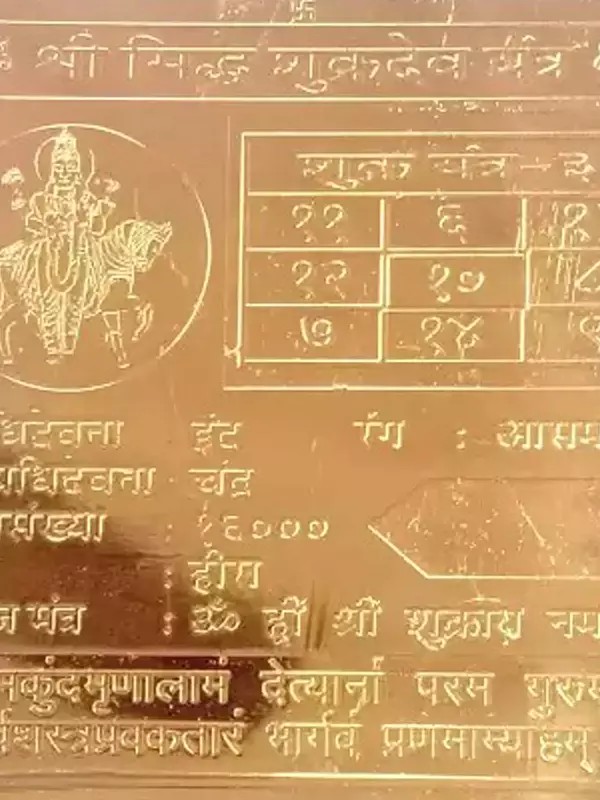 श्री सिद्ध शुक्रदेव यंत्र
शुक्र यंत्र - इ
११ ६
१२ १०
७ १४
धिदेवता इंद्र रंग : आसम
धिदेवता : चंद्र
संख्या : १६०००
: हीरा
मंत्र : ॐ ह्रीं श्रीं शुक्राय नम
मकुंदमृणालामं देत्यानां परम गुरुम
शस्त्रप्रवक्तारं भार्गवं प्रणमाम्यहम्